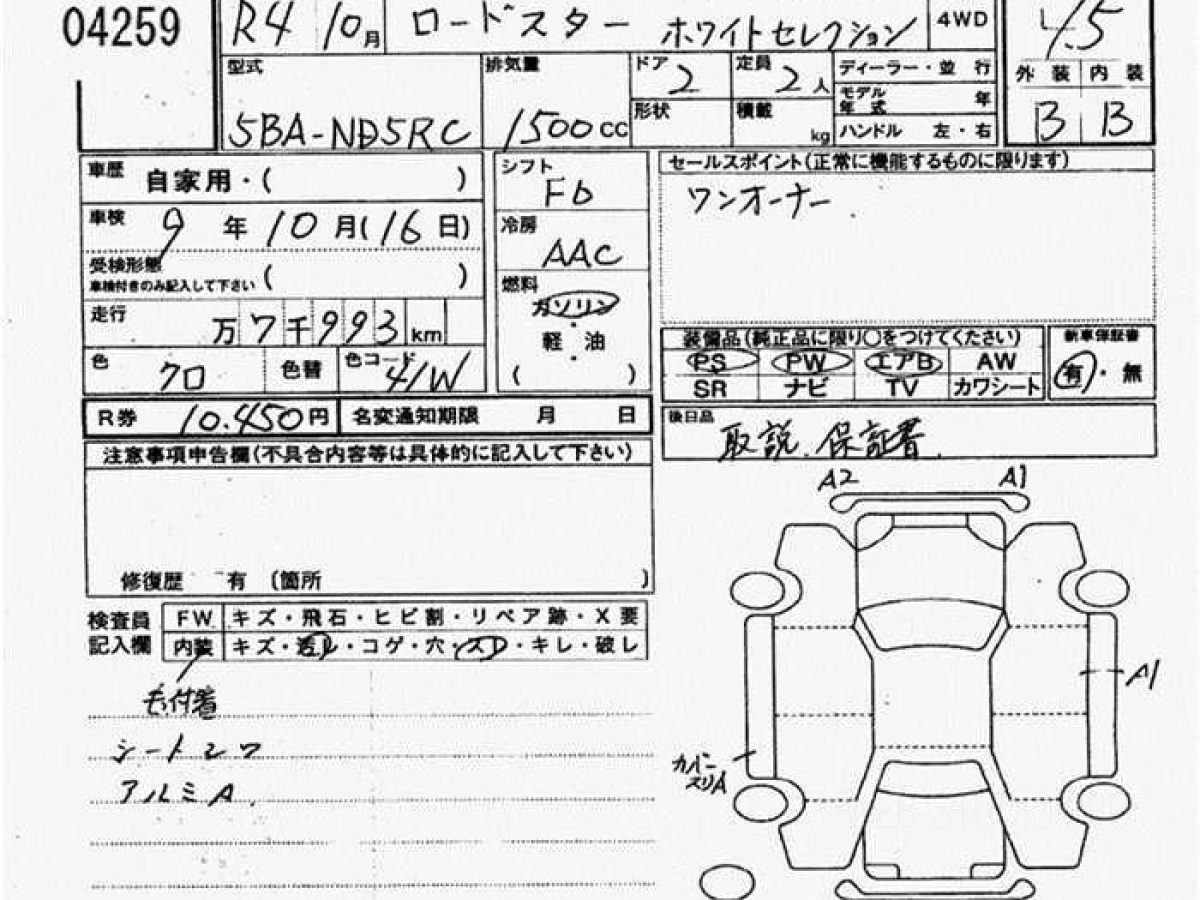 04259
R4 10月 ロードスター ホワイトセレクション 4WD 4.5
型式 5BA-ND5RC
排気量 1500cc
ドア 2
定員 2人
形状
積載 kg
ディーラー・並 行
モデル年式 年
ハンドル 左・右
外 装 内 装
B B
車歴 自家用・( )
車検 9年10月(16日)
受検形態
車検付きのみ記入して下さい ( )
走行 万7千993km
色 クロ 色替 色コード 41W
シフト F6
冷房 AAC
燃料 ガソリン
・
軽 油
・
( )
セールスポイント(正常に機能するものに限ります)
ワンオーナー
装備品(純正品に限り○をつけてください)
PS PW エアB AW
SR ナビ TV カワシート
新車保証書
有・無
R券 10.450円 名変通知期限 月 日
後日品 取説、保証書
注意事項申告欄(不具合内容等は具体的に記入して下さい)
修復歴 有 〔箇所 〕
検査員
記入欄
FW キズ・飛石・ヒビ割・リペア跡・X要
内装 キズ・汚レ・コゲ・穴・スレ・キレ・破レ
毛付着
シートシワ
アルミA
A2 A1
A1
カバー
スリA